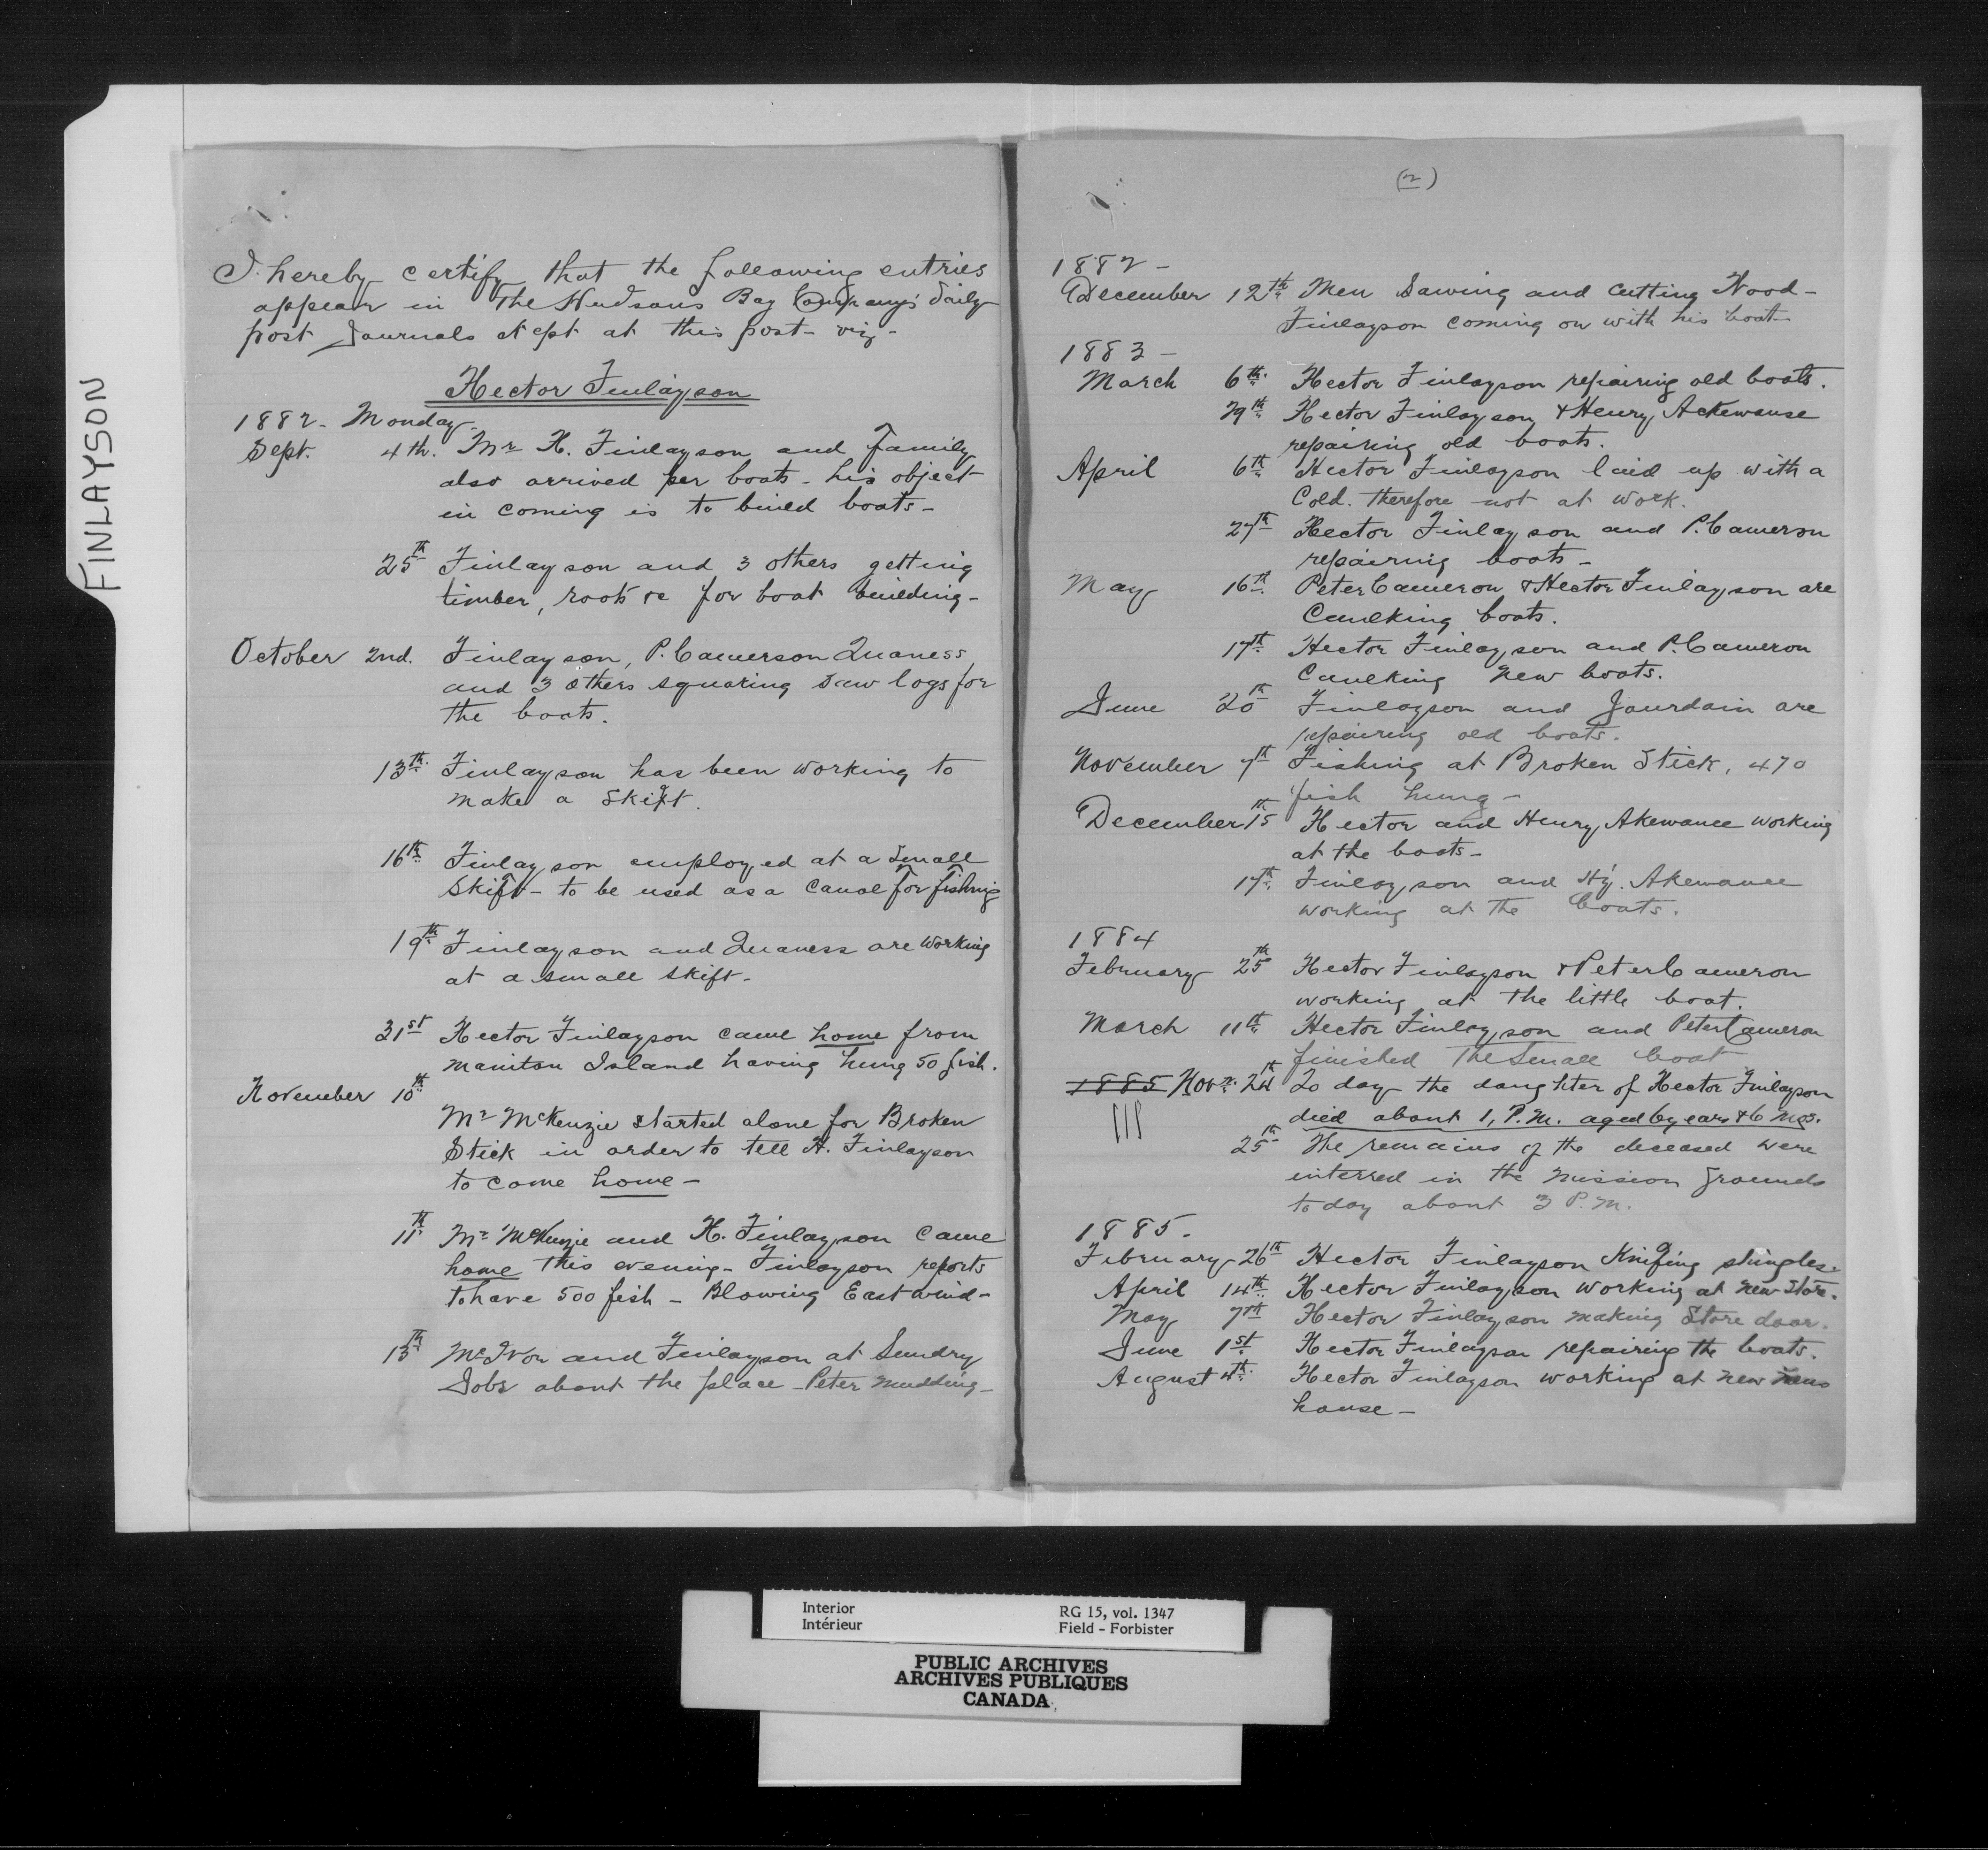 FINLAYSON
I hereby certify that the following entries
appear in The Hudsons Bay Company's daily
post Journals kept at this post - viz -
Hector Finlayson
1882 - Monday
Sept. 4th. Mr H. Finlayson and family
also arrived per boats - his object
in coming is to build boats -
25th Finlayson and 3 others getting
timber, roots &c for boat building -
October 2nd. Finlayson, P. Camerson Quaness
and 3 others squaring saw logs for
the boats.
13th Finlayson has been working to
make a skift.
16th Finlayson employed at a small
skift - to be used as a canoe for fishing
19th Finlayson and Quaness are working
at a small skift -
31st Hector Finlayson came home from
Manitou Island having hung 50 fish.
November 10th
Mr McKenzie started alone for Broken
Stick in order to tell H. Finlayson
to come home -
11th Mr McKenzie and H. Finlayson came
home this evening - Finlayson reports
to have 500 fish - Blowing East wind -
13th McIvor and Finlayson at Sundry
Jobs about the place - Peter mudding -
(2)
1882 -
December 12th Men Sawing and cutting Wood -
Finlayson coming on with his boat -
1883 -
March 6th Hector Finlayson repairing old boats.
29th Hector Finlayson & Henry Ackewanse
repairing old boats.
April 6th Hector Finlayson laid up with a
Cold. therefore not at work.
27th Hector Finlayson and P. Cameron
repairing boats -
May 16th Peter Cameron & Hector Finlayson are
Caulking boats.
17th Hector Finlayson and P. Cameron
Caulking new boats.
June 20th Finlayson and Jourdain are
repairing old boats.
November 7th Fishing at Broken Stick, 470
fish hung -
December 15th Hector and Henry Akewance working
at the boats -
17th Finlayson and Hy. Akewance
working at the boats.
1884
February 25th Hector Finlayson & Peter Cameron
working at the little boat.
March 11th Hector Finlayson and Peter Cameron
finished the small boat
1885 Novr. 24th To day the daughter of Hector Finlayson
died about 1, P.M. aged 6 years & 6 mos.
25th The remains of the deceased were
interred in the Mission Grounds
to day about 3 P.M.
1885.
February 26th Hector Finlayson Knifing shingles.
April 14th Hector Finlayson working at new store.
May 7th Hector Finlayson making Store door.
June 1st Hector Finlayson repairing the boats.
August 4th Hector Finlayson working at new mens
house -
Interior
Intérieur
RG 15, vol. 1347
Field - Forbister
PUBLIC ARCHIVES
ARCHIVES PUBLIQUES
CANADA